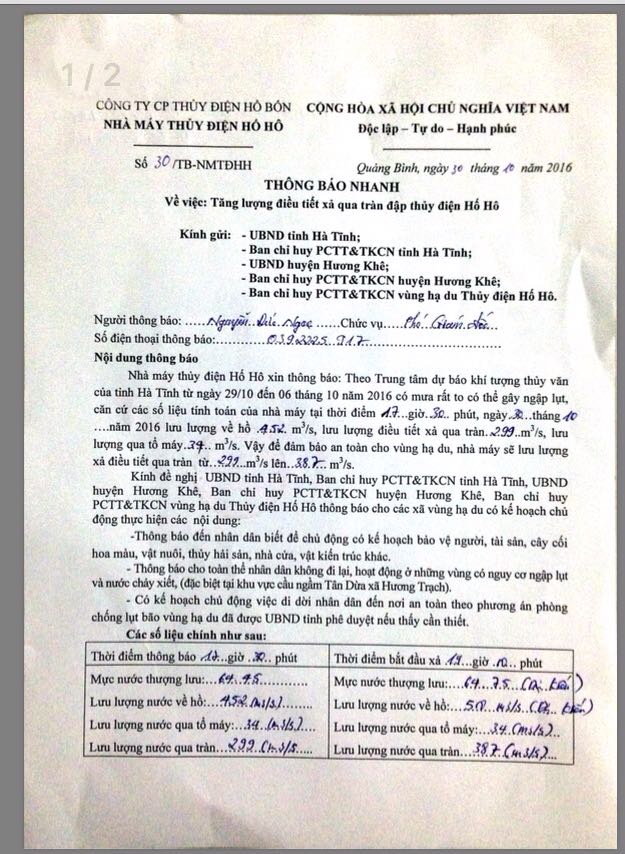 1/2
CÔNG TY CP THỦY ĐIỆN HỒ BỐN CỘNG HÒA XÃ HỘI CHỦ NGHĨA VIỆT NAM
NHÀ MÁY THỦY ĐIỆN HỐ HÔ Độc lập – Tự do – Hạnh phúc
Số 30/TB-NMTĐHH Quảng Bình, ngày 30 tháng 10 năm 2016
THÔNG BÁO NHANH
Về việc: Tăng lượng điều tiết xả qua tràn đập thủy điện Hố Hô
Kính gửi: - UBND tỉnh Hà Tĩnh;
- Ban chỉ huy PCTT&TKCN tỉnh Hà Tĩnh;
- UBND huyện Hương Khê;
- Ban chỉ huy PCTT&TKCN huyện Hương Khê;
- Ban chỉ huy PCTT&TKCN vùng hạ du Thủy điện Hố Hô.
Người thông báo: ......Nguyễn Đức Ngọc......Chức vụ......Phó Giám đốc......
Số điện thoại thông báo:..........0392225 917..........
Nội dung thông báo
Nhà máy thủy điện Hố Hô xin thông báo: Theo Trung tâm dự báo khí tượng thủy văn
của tỉnh Hà Tĩnh từ ngày 29/10 đến 06 tháng 10 năm 2016 có mưa rất to có thể gây ngập lụt,
căn cứ các số liệu tính toán của nhà máy tại thời điểm 17..giờ..30.. phút, ngày..30..tháng 10
....năm 2016 lưu lượng về hồ .452 m³/s, lưu lượng điều tiết xả qua tràn..299..m³/s, lưu
lượng qua tổ máy..34.. m³/s. Vậy để đảm bảo an toàn cho vùng hạ du, nhà máy sẽ lưu lượng
xả điều tiết qua tràn từ..299..m³/s lên..387.. m³/s.
Kính đề nghị UBND tỉnh Hà Tĩnh, Ban chỉ huy PCTT&TKCN tỉnh Hà Tĩnh, UBND
huyện Hương Khê, Ban chỉ huy PCTT&TKCN huyện Hương Khê, Ban chỉ huy
PCTT&TKCN vùng hạ du Thủy điện Hố Hô thông báo cho các xã vùng hạ du có kế hoạch chủ
động thực hiện các nội dung:
-Thông báo đến nhân dân biết để chủ động có kế hoạch bảo vệ người, tài sản, cây cối
hoa màu, vật nuôi, thủy hải sản, nhà cửa, vật kiến trúc khác.
- Thông báo cho toàn thể nhân dân không đi lại, hoạt động ở những vùng có nguy cơ ngập lụt
và nước chảy xiết, (đặc biệt tại khu vực cầu ngầm Tân Dừa xã Hương Trạch).
- Có kế hoạch chủ động việc di dời nhân dân đến nơi an toàn theo phương án phòng
chống lụt bão vùng hạ du đã được UBND tỉnh phê duyệt nếu thấy cần thiết.
Các số liệu chính như sau:
Thời điểm thông báo 17..giờ..30.. phút Thời điểm bắt đầu xả 19...giờ 10... phút
Mực nước thượng lưu:...64..45...... Mực nước thượng lưu:...64..75..(Dự kiến)
Lưu lượng nước về hồ:...452 (m3/s)...... Lưu lượng nước về hồ:...510..m3/s..(Dự kiến)
Lưu lượng nước qua tổ máy:...34..(m3/s).. Lưu lượng nước qua tổ máy:..34 (m3/s)..
Lưu lượng nước qua tràn:...299 (m3/s)..... Lưu lượng nước qua tràn:...387 (m3/s)...